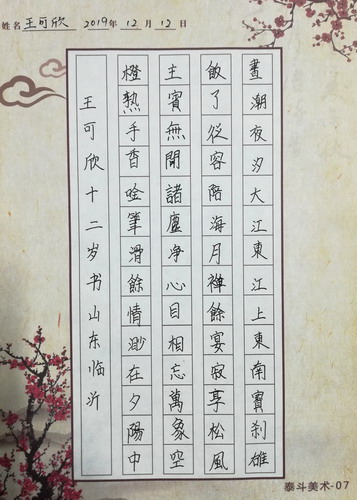 姓名 王可欣 2019年 12月 12日
晝潮夜汐大江東江上東南寶剎雄
飯了從容陪海月禪餘宴寂享松風
主賓無間諸塵净心目相忘萬象空
橙熱手香唫筆滑餘情渺在夕陽中
王可欣十二岁书山东临沂
泰斗美术-07